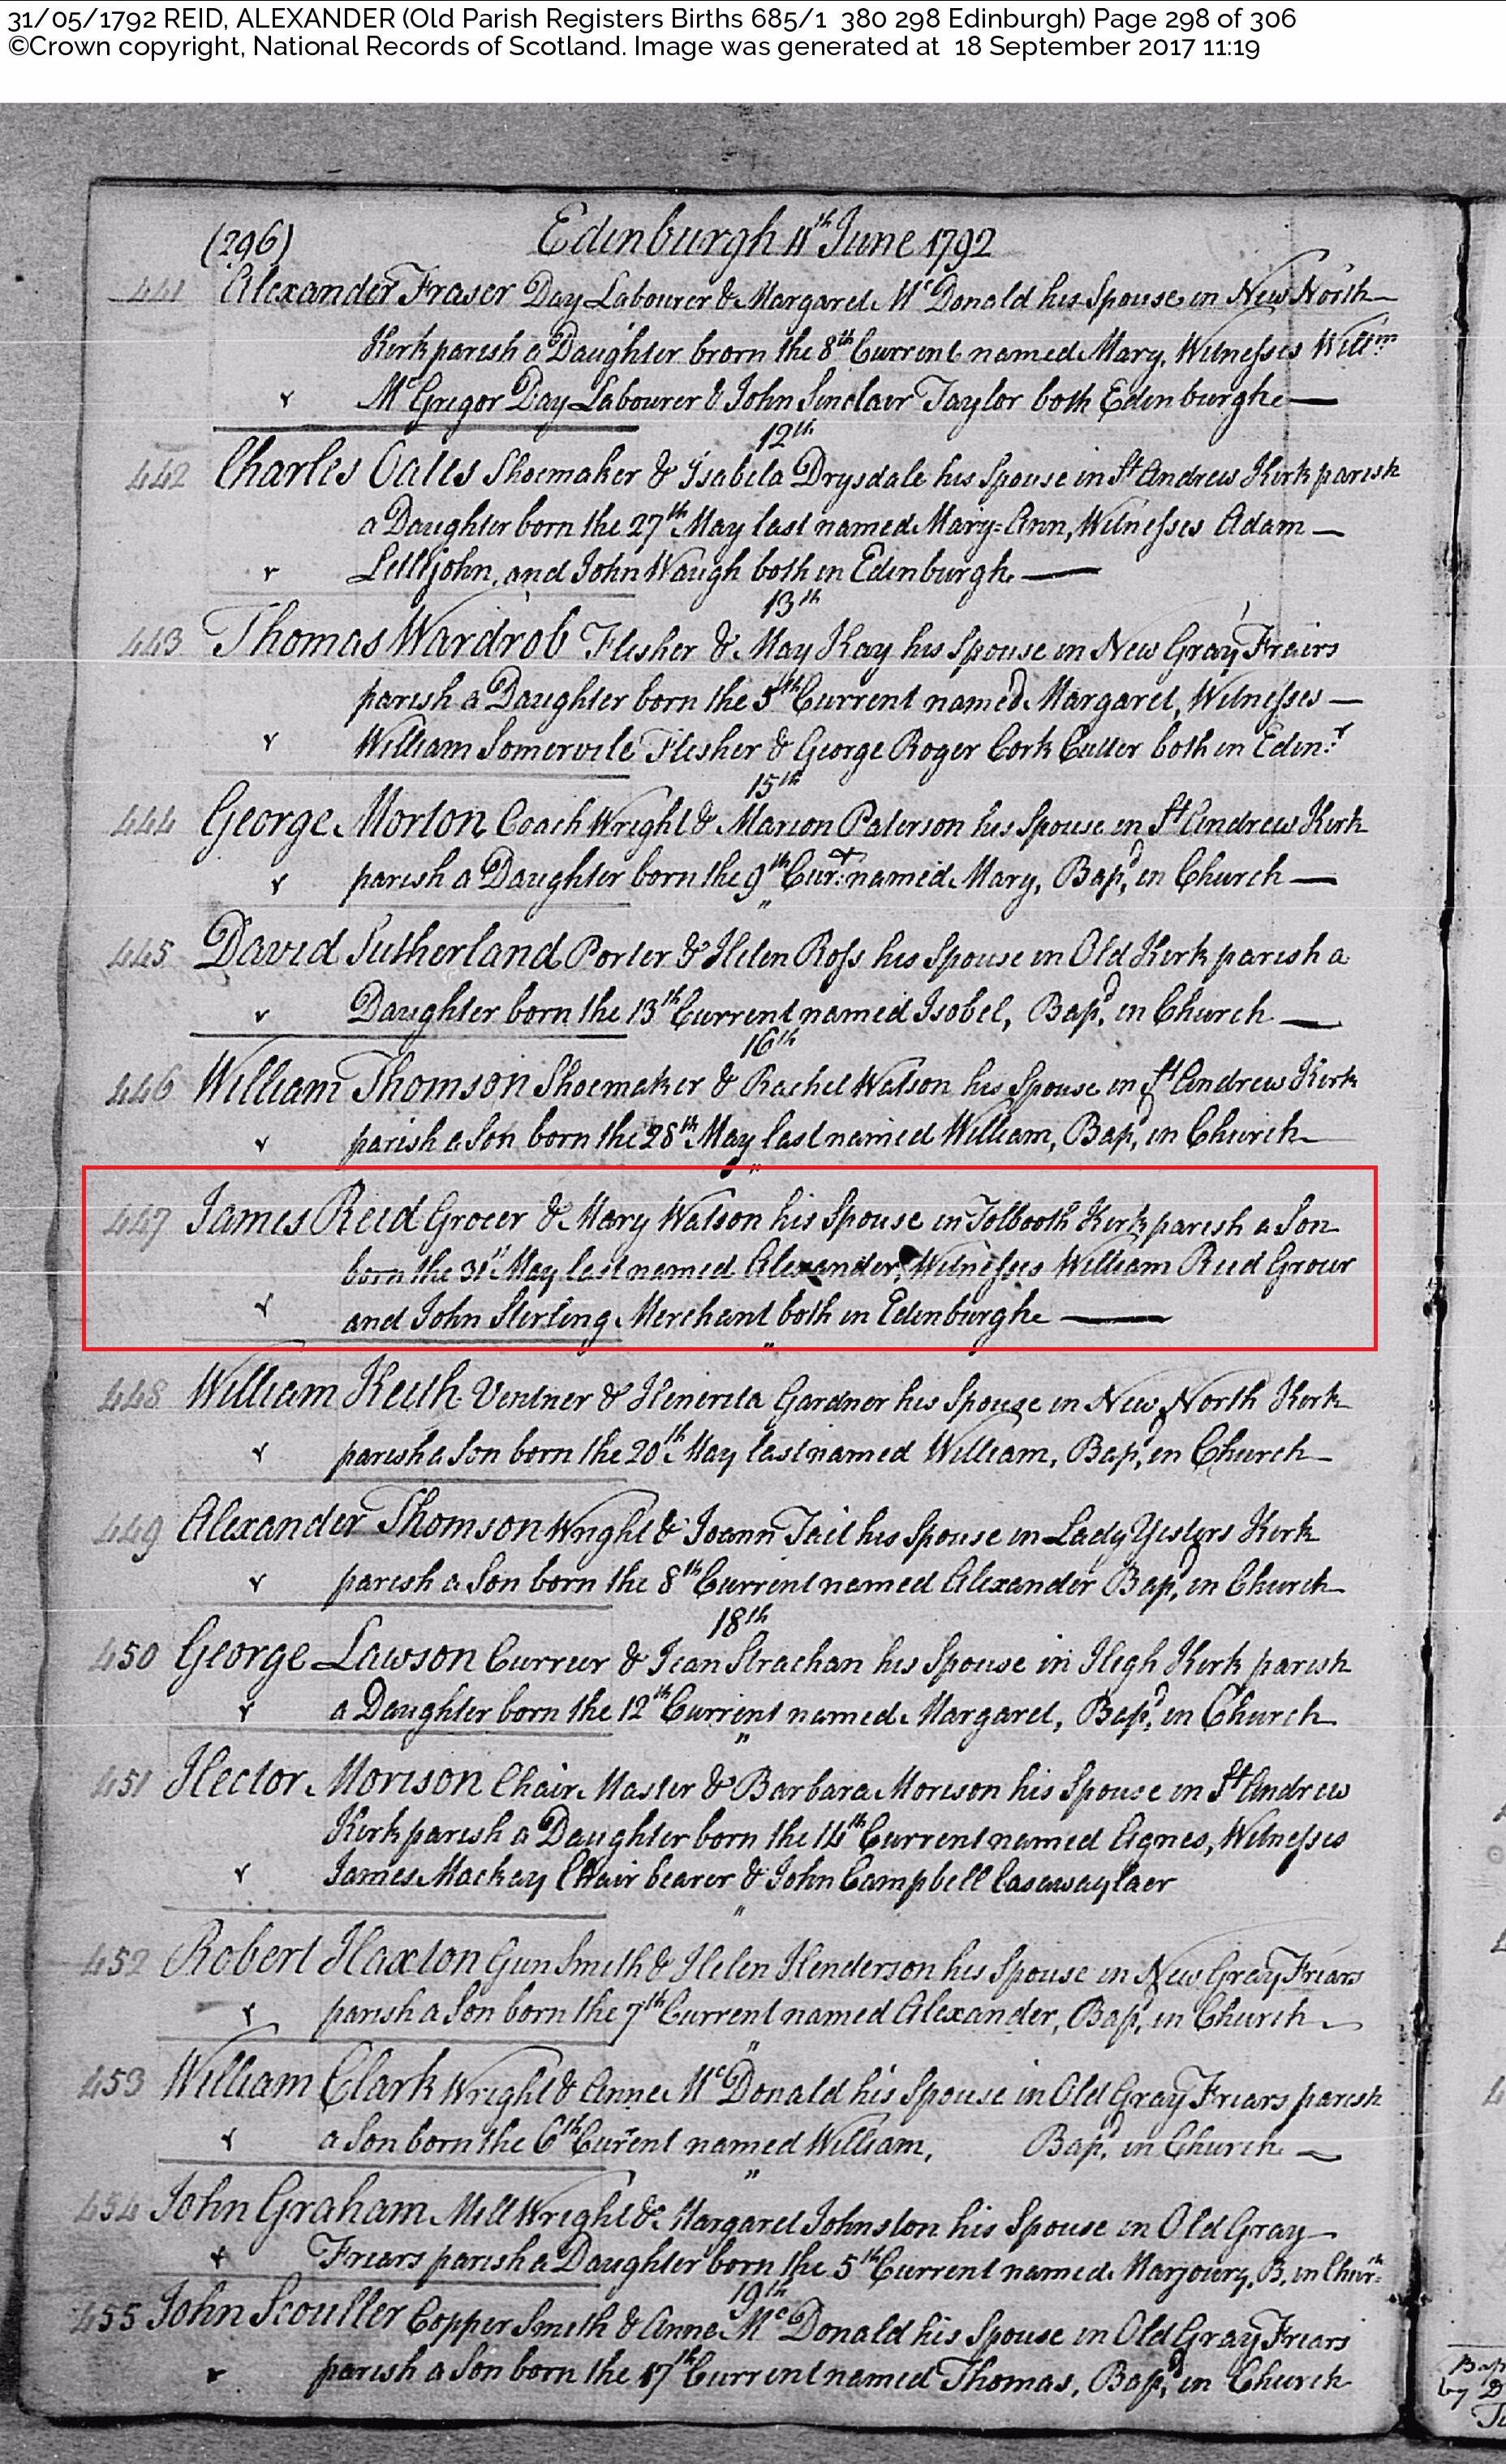 31/05/1792 REID, ALEXANDER (Old Parish Registers Births 685/1 380 298 Edinburgh) Page 298 of 306
©Crown copyright, National Records of Scotland. Image was generated at 18 September 2017 11:19
(296) Edinburgh 11th June 1792
441 Alexander Fraser Day Labourer & Margaret McDonald his Spouse in New North
Kirk parish a Daughter brorn the 8th Current named Mary, Witnesses Willm
McGregor Day Labourer & John Sinclair Taylor both Edinburgh
12th
442 Charles Oates Shoemaker & Isabela Drysdale his Spouse in St Andrew Kirk parish
a Daughter born the 27th May last named Mary=Ann, Witnesses Adam
Littljohn, and John Waugh both in Edinburgh
13th
443 Thomas Wardrob Flesher & May Kay his Spouse in New Gray Freirs
parish a Daughter born the 5th Current named Margaret, Witnesses
William Somervile Flesher & George Roger Cork Cutter both in Edinr
15th
444 George Morton Coach Wright & Marion Paterson his Spouse in St Andrew Kirk
parish a Daughter born the 9th Curt: named Mary, Bapd in Church
"
445 David Sutherland Porter & Helen Ross his Spouse in Old Kirk parish a
Daughter born the 13th Current named Isobel, Bapd in Church
16th
446 William Thomson Shoemaker & Rachel Watson his Spouse in St Andrew Kirk
parish a Son born the 28th May last named William, Bapd in Church
"
447 James Reid Grocer & Mary Watson his Spouse in Tolbooth Kirk parish a Son
born the 31st May last named Alexander, Witnesses William Reid Grocer
and John Sterling Merchant both in Edinburgh
"
448 William Keith Ventner & Heniretta Gardner his Spouse in New North Kirk
parish a Son born the 20th May last named William, Bapd in Church
449 Alexander Thomson Wright & Joann Tait his Spouse in Lady Yesters Kirk
parish a Son born the 8th Current named Alexander Bapd in Church
18th
450 George Lawson Currier & Jean Strachan his Spouse in High Kirk parish
a Daughter born the 12th Current named Margaret, Bapd in Church
"
451 Hector Morison Chair Master & Barbara Morison his Spouse in St Andrew
Kirk parish a Daughter born the 14th Current named Agnes, Witnesses
James Mackay Chair bearer & John Campbell Casewaylaer
"
452 Robert Haxton Gun Smith & Helen Henderson his Spouse in New Gray Friars
parish a Son born the 7th Current named Alexander, Bapd in Church
"
453 William Clark Wright & Anne McDonald his Spouse in Old Gray Friars parish
a Son born the 6th Curent named William, Bapd in Church
"
454 John Graham Mill Wright & Margaret Johnston his Spouse in Old Gray
Friars parish a Daughter born the 5th Current named Marjoury, B. in Churth
19th
455 John Scouller Copper Smith & Anne McDonald his Spouse in Old Gray Friars
parish a Son born the 17th Current named Thomas, Bapd in Church
by D